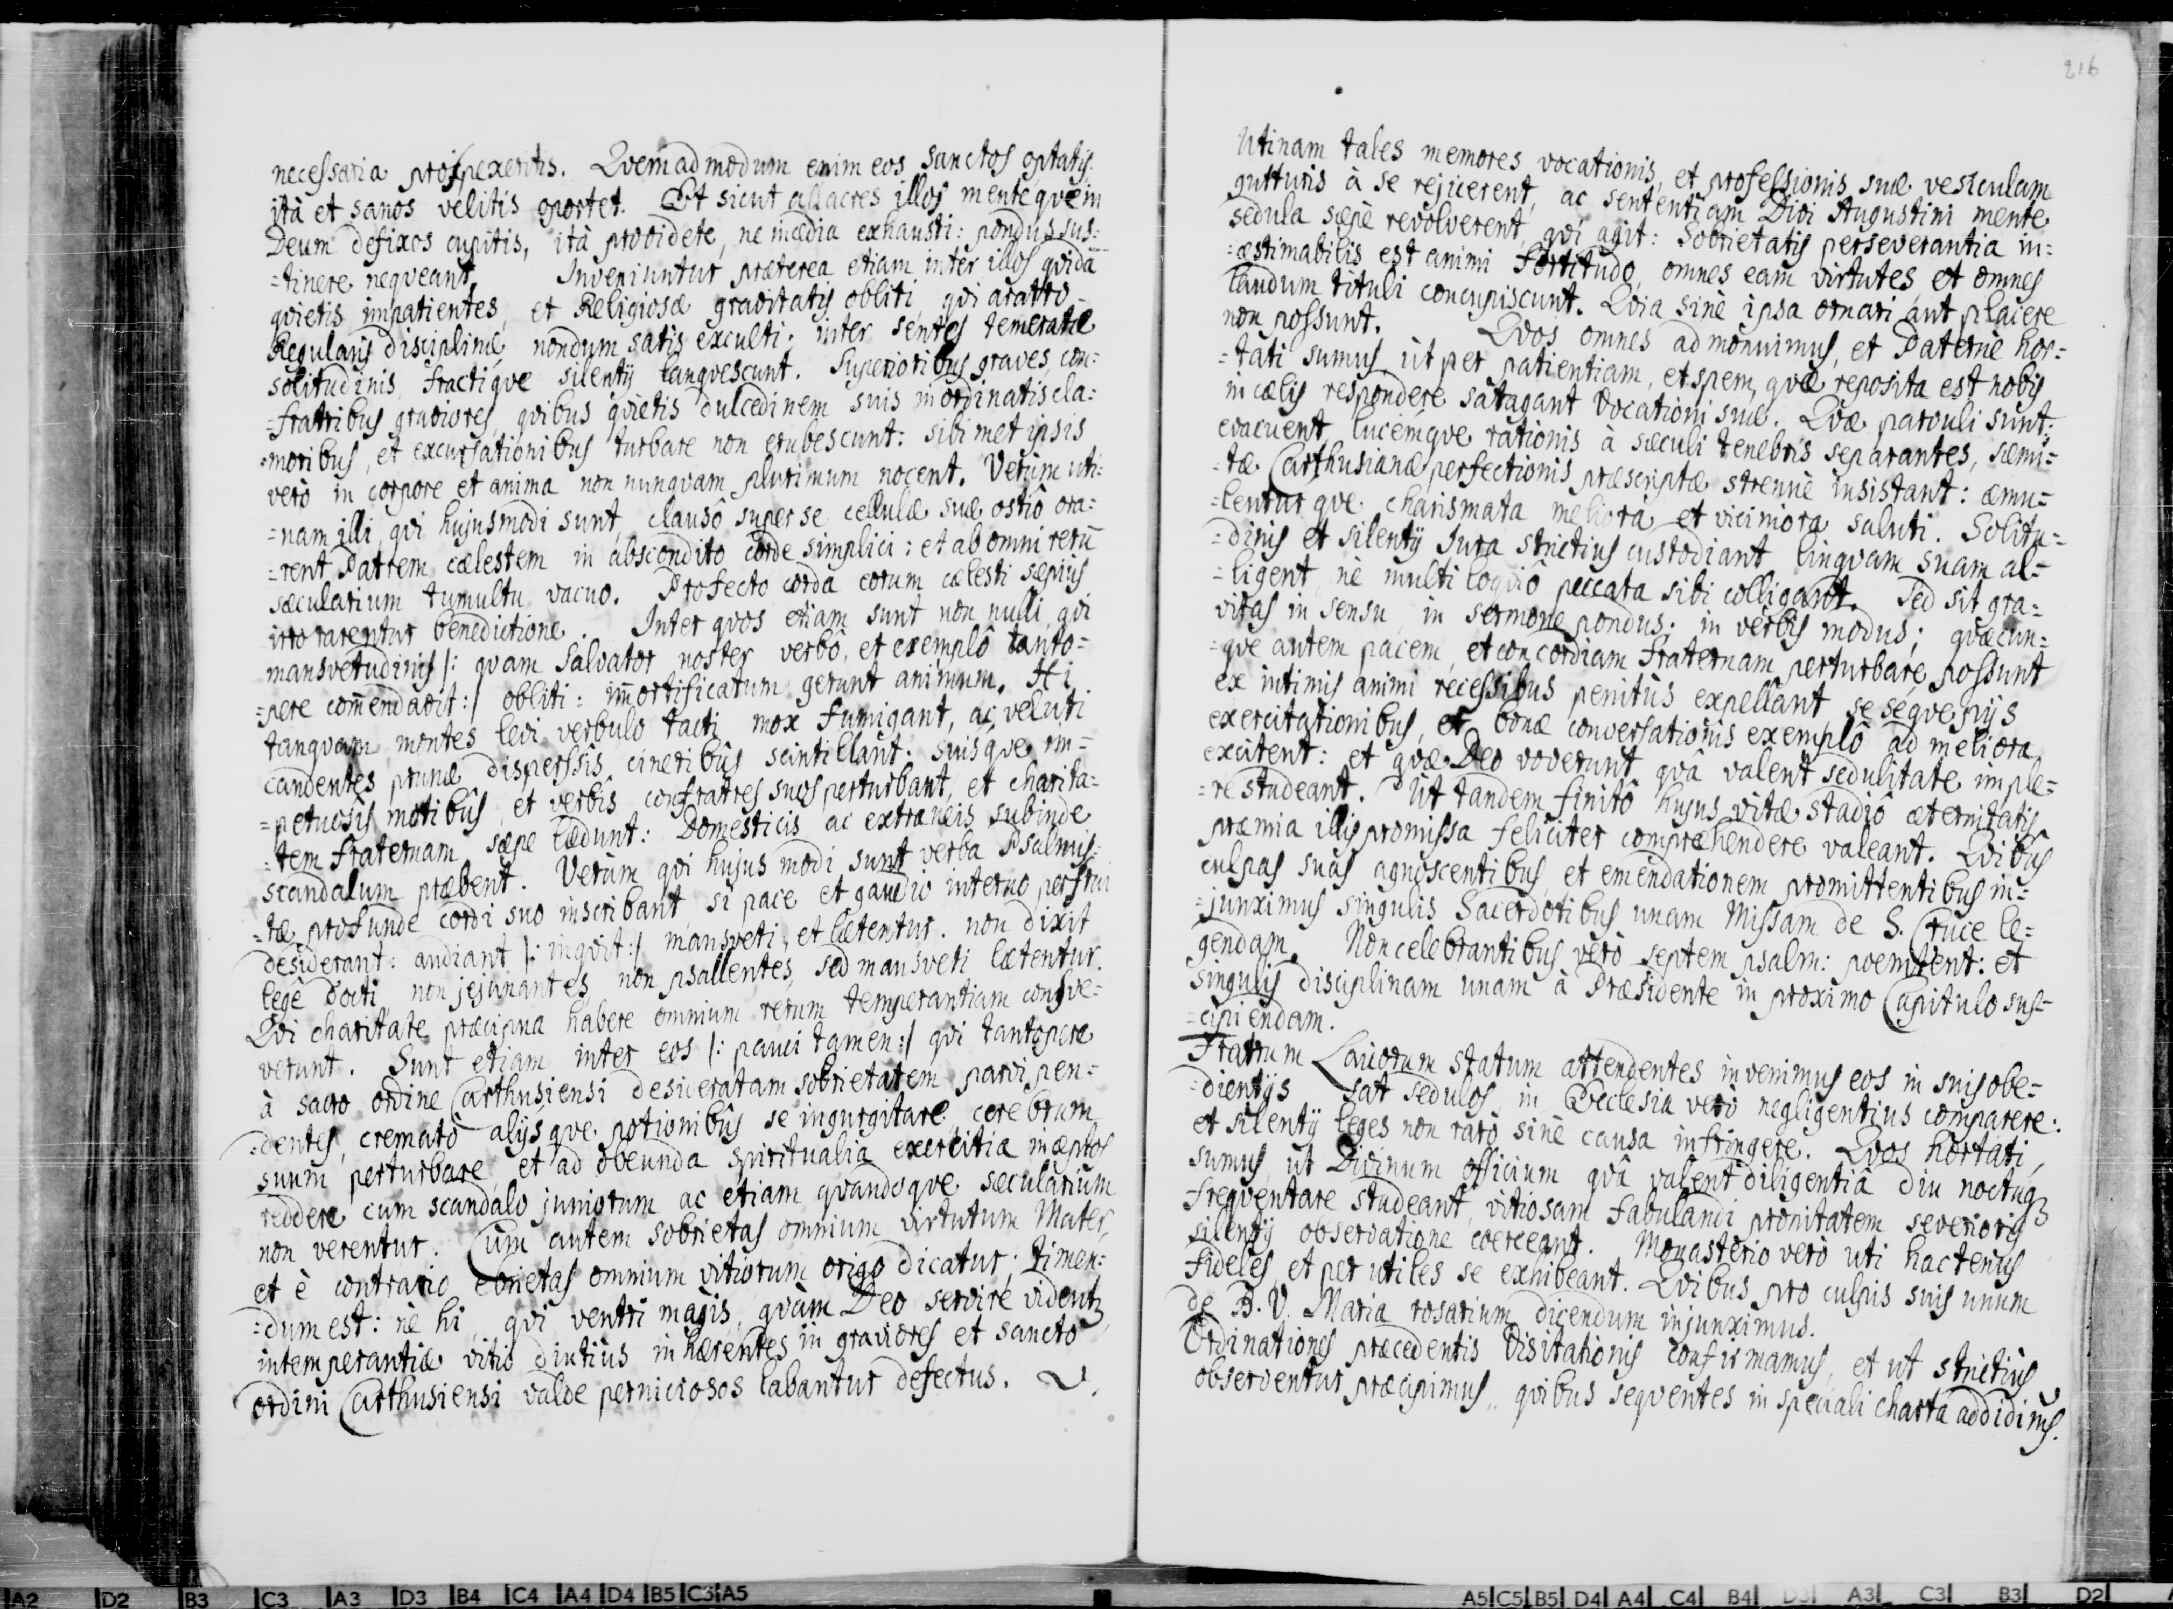 necessaria prospexeritis. Qvemadmodum enim eos sanctos optatis:
ità et sanos velitis oportet. Et sicut allacres illos mentequein
Deum defixos cupitis, ità providete, ne inædia exhausti: pondus sus:
=tinere neqveant. Inveniuntur præterea etiam inter illos qvidā
qvietis impatientes, et Religiosæ gravitatis obliti, qvi aratro
Regularis disciplinæ nondum satis exculti: inter sentes temeratæ
solitudinis fractiqve silentij langvescunt. Superioribus graves, con:
=fratribus graviores, qvibus qvietis dulcedinem suis inordinatis cla:
=moribus, et excursationibus turbare non erubescunt: sibi met ipsis
verò in corpore et anima non nunqvam plurimum nocent. Verùm uti:
=nam illi, qvi hujusmodi sunt, clausô super se cellulæ suæ ostiô ora:
=rent Patrem cælestem in abscondito corde simplici: et ab omni rerū
sæcularium tumultu vacuo. Profecto corda eorum cælesti sæpius
irrorarentur benedictione. Inter qvos etiam sunt non nulli, qvi
mansvetudinis |: qvam Salvator noster verbô, et exemplô tanto=
=pere com̄endavit :| obliti: im̄ortificatum gerunt animum. Hi
tanqvam montes levi verbulo tacti mox fumigant, ac veluti
candentes prunæ disperssis cineribûs scintillant. suisqve im=
=petuosis motibûs, et verbis confratres suos perturbant, et charita=
=tem fraternam sæpe lædunt: Domesticis ac extraneis subinde
scandalum præbent. Verùm qvi hujus modi sunt verba Psalmis:
=tæ profunde cordi suo inscribant, si pace et gaudio interno perfrui
desiderant: audiant |: inqvit :| mansveti, et lætentur. non dixit
lege docti, non jejunantes, non psallentes, sed mansveti lætentur.
Qvi charitate præcipua habere omnium rerum temperantiam consve:
verunt. Sunt etiam inter eos |: pauci tamen :| qvi tantopere
à sacro ordine Carthusiensi desideratam sobrietatem parvi pen=
=dentes, cremato alijsqve potionibûs se ingurgitare cerebrum
suum perturbare, et ad obeunda spiritualia exercitia inæptos
reddere cum scandalo juniorum ac etiam qvandoqve sæcularium
non verentur. Cùm autem sobrietas omnium virtutum Mater,
et è contrario ebrietas omnium vitiorum origo dicatur; timen:
=dum est: nè hi, qvi ventri magis, qvàm Deo servire videntꝫ
intemperantiæ vitio diutiùs inhærentes in graviores et sancto
ordini Carthusiensi valde perniciosos labantur defectus.
216
Utinam tales memores vocationis, et professionis suæ vesiculam
gutturis à se rejicerent, ac sententiam Divi Augustini mente
sedula sæpè revolverent, qvi agit: Sobrietatis perseverantia in=
=æstimabilis est animi fortitudo, omnes eam virtutes et omnes
laudum tituli concupiscunt. Qvia sinè ipsa ornari aut placere
non possunt. Qvos omnes admonuimus, et Paternè hor=
=tati sumus, ut per patientiam, et spem, qvæ reposita est nobis
in cælis respondere satagant Vocationi suæ. Qvæ parvuli sunt.
evacuent, lucemqve rationis à sæculi tenebris separantes, sæmi=
=tæ Carthusianæ perfectionis præscriptæ strenuè insistant: æmu=
=lenturqve charismata meliora et viciniora saluti. Solitu=
=dinis et silentij Jura strictius custodiant lingvam suam al=
=ligent, ne multi loqviô peccata sibi colligant. Sed sit gra=
vitas in sensu, in sermone pondus; in verbis modus; qvæcun=
=qve autem pacem, et concordiam fraternam perturbare possunt
ex intimis animi recessibus penitùs expellant seseqve pijs
exercitationibus, et bonæ conversationis exemplô ad meliora
excitent: et qvæ Deo voverunt, qvâ valent sedulitate imple=
=re studeant. Ut tandem finitô hujus vitæ stadiô æternitatis
præmia illis promissa feliciter compræhendere valeant. Qvibus
culpas suas agnoscentibus, et emendationem promittentibus in=
=junximus singulis Sacerdotibus unam Missam de S. Cruce le=
gendam. Non celebrantibus verò septem psalm: poenitent: et
singulis disciplinam unam à Præsidente in proximo Capitulo sus=
=cipiendam.
Fratrum Laicorum statum attendentes invenimus eos in suis obe=
=dientijs sat sedulos, in Ecclesia verò negligentius comparere:
et silentij leges non rarò sinè causa infringere. Qvos hortati
sumus, ut Divinum officium qvâ valent diligentiâ diu noctuqꝫ
freqventare studeant, vitiosam fabulandi pronitatem severioris
silentij observatione coerceant. Monasterio verò uti hactenus
fideles, et per utiles se exhibeant. Qvibus pro culpis suis unum
de B. V. Maria rosarium dicendum injunximus.
Ordinationes præcedentis Visitationis confirmamus, et ut strictius
observentur præcipimus, qvibus seqventes in speciali charta addidimus.